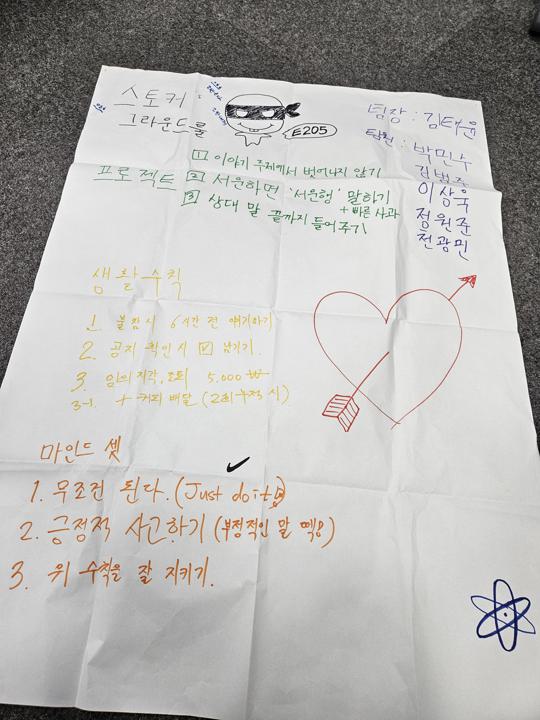 스토커
그라운드룰
E205
팀장 : 김태윤
팀원 : 박민수
김범준
이상욱
정원준
천광민
프로젝트
1 이야기 주제에서 벗어나지 않기
2 서운하면 '서운행' 말하기
+ 빠른 사과
3 상대 말 끝까지 들어주기
생활수칙
1. 불참시 6시간 전 얘기하기
2. 공지 확인시 ☑ 남기기
3. 임의지각, 조퇴 5,000₩
3-1. + 커피 배달 (2회 누적 시)
마인드 셋
1. 무조건 된다. (Just do it)
2. 긍정적 사고하기 (부정적인 말 떽!)
3. 위 수칙을 잘 지키기.